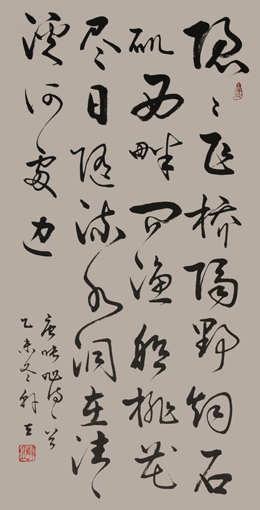 隐〻飞桥隔野烟石
矶西畔问渔船桃花
尽日随流水洞在清
溪何處边
唐张旭诗
乙未冬